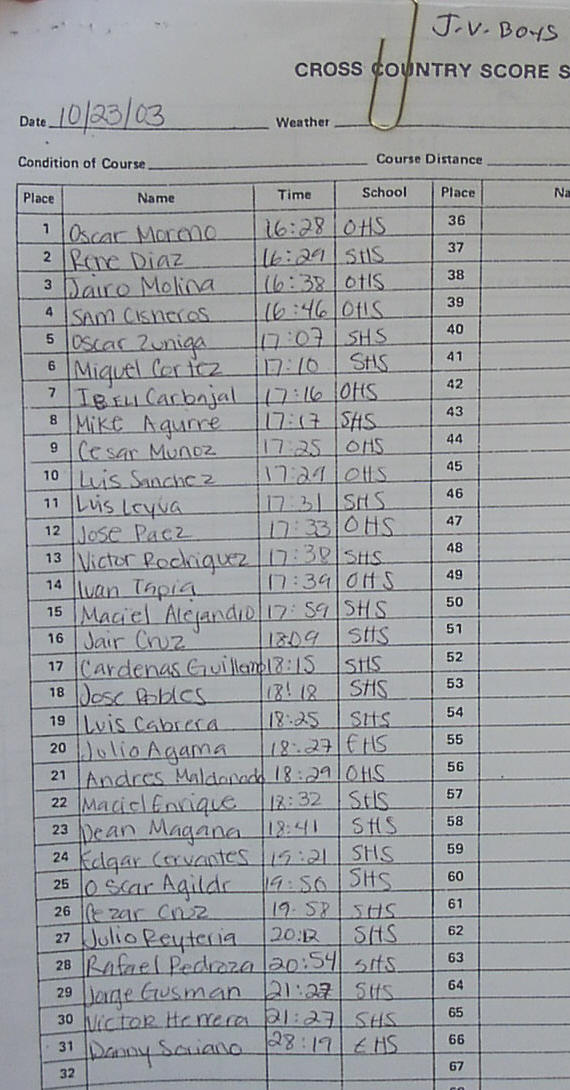 J.V. BOYS
CROSS COUNTRY SCORE S
Date 10/23/03 Weather
Condition of Course Course Distance
Place Name Time School Place Na
1 Oscar Moreno 16:28 OHS 36
2 Rene Diaz 16:29 SHS 37
3 Jairo Molina 16:38 OHS 38
4 SAM Cisneros 16:46 OHS 39
5 Oscar Zuniga 17:07 SHS 40
6 Miguel Cortez 17:10 SHS 41
7 IBELI Carbajal 17:16 OHS 42
8 Mike Agurre 17:17 SHS 43
9 Cesar Munoz 17:25 OHS 44
10 Luis Sanchez 17:29 OHS 45
11 Luis Leyva 17:31 SHS 46
12 Jose Paez 17:33 OHS 47
13 Victor Rodriguez 17:38 SHS 48
14 Ivan Tapia 17:39 OHS 49
15 Maciel Alejandro 17:59 SHS 50
16 Jair Cruz 18:09 SHS 51
17 Cardenas Guillermo 18:15 SHS 52
18 Jose Robles 18:18 SHS 53
19 Luis Cabrera 18:25 SHS 54
20 Julio Agama 18:27 EHS 55
21 Andres Maldonado 18:29 OHS 56
22 Maciel Enrique 18:32 SHS 57
23 Dean Magana 18:41 SHS 58
24 Edgar Cervantes 19:21 SHS 59
25 Oscar Agildr 19:50 SHS 60
26 Cezar Cruz 19:58 SHS 61
27 Julio Reyteria 20:12 SHS 62
28 Rafael Pedroza 20:54 SHS 63
29 Jorge Gusman 21:27 SHS 64
30 Victor Herrera 21:27 SHS 65
31 Danny Soriano 28:19 EHS 66
32 67